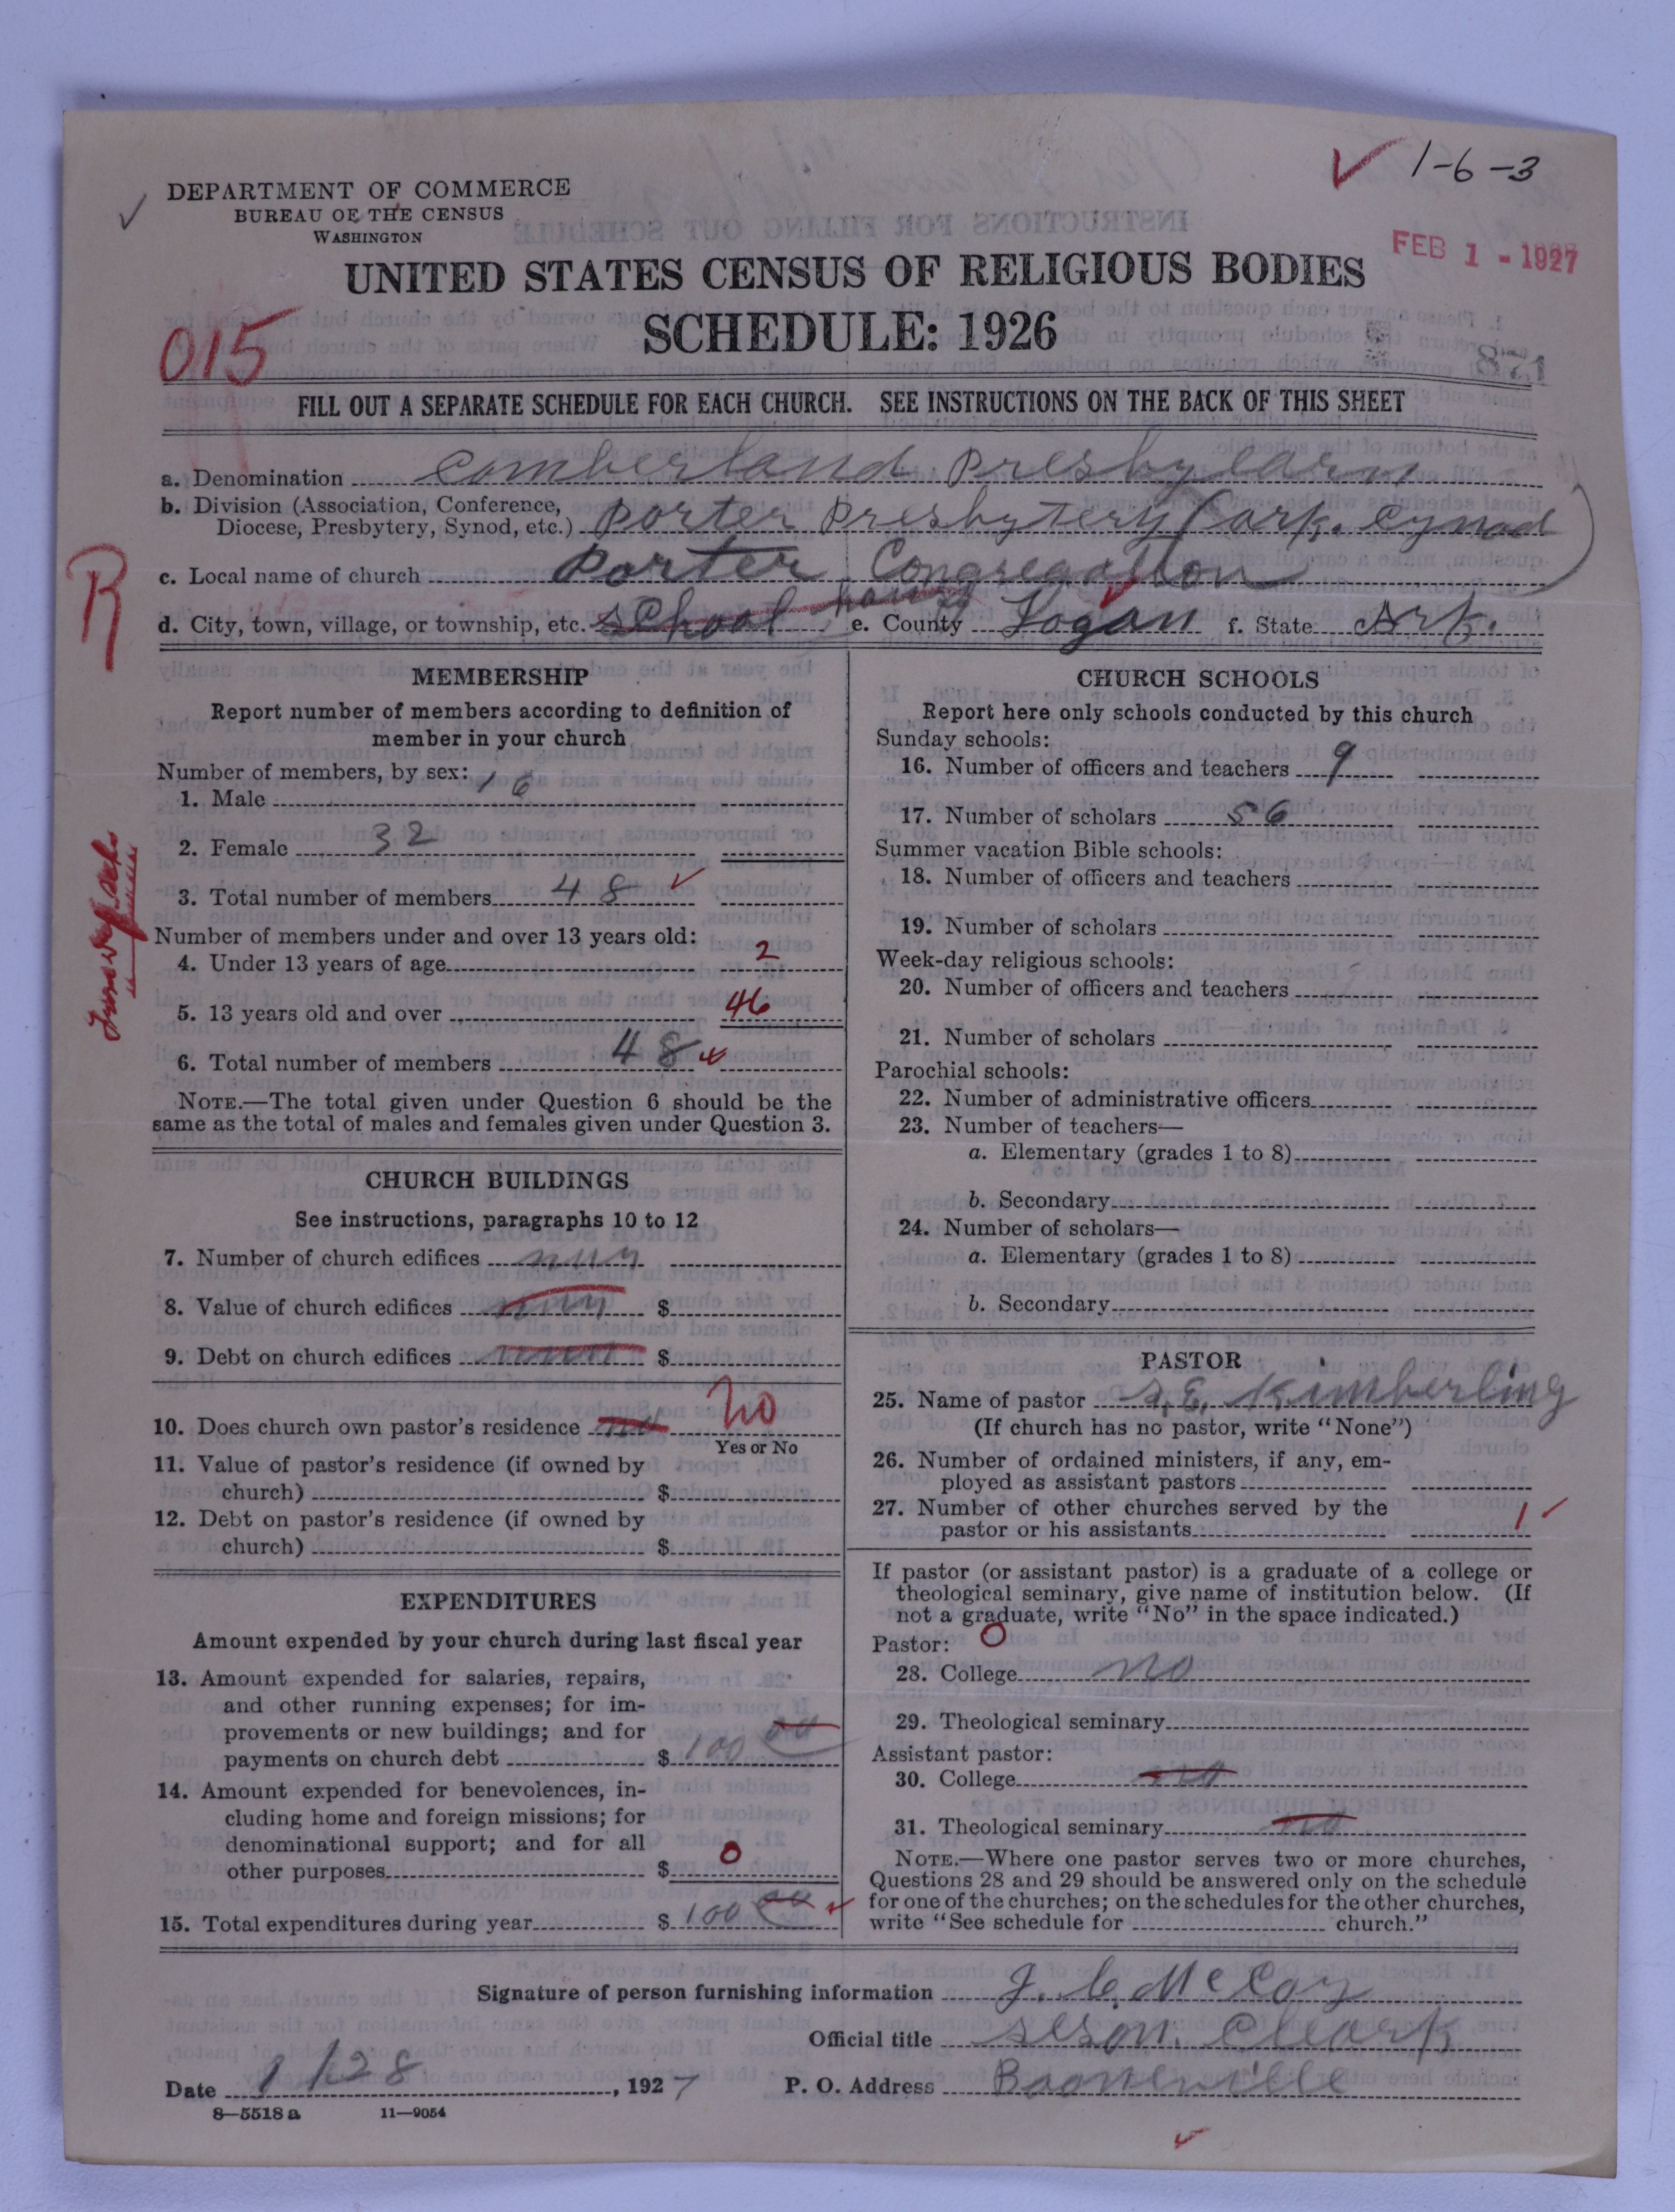 ✓ 1-6-3
DEPARTMENT OF COMMERCE
BUREAU OF THE CENSUS
WASHINGTON
FEB 1 - 1927
UNITED STATES CENSUS OF RELIGIOUS BODIES
SCHEDULE: 1926
015
871
FILL OUT A SEPARATE SCHEDULE FOR EACH CHURCH. SEE INSTRUCTIONS ON THE BACK OF THIS SHEET
a. Denomination Comberland Presbytearn
b. Division (Association, Conference,
Diocese, Presbytery, Synod, etc.) Porter Presbytery (Ark. Cynod)
R
c. Local name of church Porter Congregation
d. City, town, village, or township, etc. School house e. County Logan f. State Ark.
MEMBERSHIP
Report number of members according to definition of
member in your church
Number of members, by sex:
1. Male 16
2. Female 32
3. Total number of members 48 ✓
Number of members under and over 13 years old:
4. Under 13 years of age 2
5. 13 years old and over 46
6. Total number of members 48
NOTE.—The total given under Question 6 should be the
same as the total of males and females given under Question 3.
CHURCH BUILDINGS
See instructions, paragraphs 10 to 12
7. Number of church edifices
8. Value of church edifices $
9. Debt on church edifices $
10. Does church own pastor's residence no
Yes or No
11. Value of pastor's residence (if owned by
church) $
12. Debt on pastor's residence (if owned by
church) $
EXPENDITURES
Amount expended by your church during last fiscal year
13. Amount expended for salaries, repairs,
and other running expenses; for im-
provements or new buildings; and for
payments on church debt $ 100 00
14. Amount expended for benevolences, in-
cluding home and foreign missions; for
denominational support; and for all
other purposes $ 0
15. Total expenditures during year $ 100 00 ✓
CHURCH SCHOOLS
Report here only schools conducted by this church
Sunday schools:
16. Number of officers and teachers 9
17. Number of scholars 56
Summer vacation Bible schools:
18. Number of officers and teachers
19. Number of scholars
Week-day religious schools:
20. Number of officers and teachers
21. Number of scholars
Parochial schools:
22. Number of administrative officers
23. Number of teachers—
a. Elementary (grades 1 to 8)
b. Secondary
24. Number of scholars—
a. Elementary (grades 1 to 8)
b. Secondary
PASTOR
25. Name of pastor S. E. Kimberling
(If church has no pastor, write "None")
26. Number of ordained ministers, if any, em-
ployed as assistant pastors
27. Number of other churches served by the
pastor or his assistants 1 ✓
If pastor (or assistant pastor) is a graduate of a college or
theological seminary, give name of institution below. (If
not a graduate, write "No" in the space indicated.)
Pastor: 0
28. College no
29. Theological seminary
Assistant pastor:
30. College no
31. Theological seminary no
NOTE.—Where one pastor serves two or more churches,
Questions 28 and 29 should be answered only on the schedule
for one of the churches; on the schedules for the other churches,
write "See schedule for church."
Signature of person furnishing information J. C. McCoy
Official title Seson. Cleark
Date 1/28, 1927 P. O. Address Booneville
8—5518a 11—9054